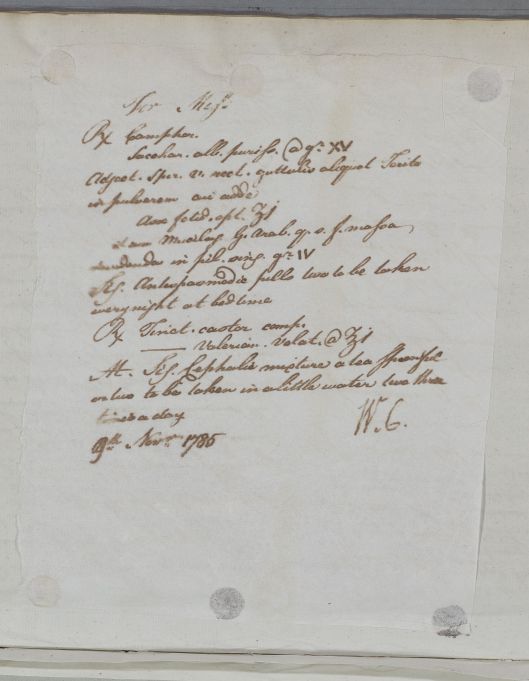 For Mrs.
℞ Camphor.
Sacchar. alb. puriss. @ gr XV
Adject. Sper. v. rect. guttulis aliquot Terite
in pulverem cui adde
Asa fetid. opt. ʒj
et cum Mucilag. G. Arab. q. s. f. massa
dividenda in pil. sing. gr. IV
Sig. Antispasmodic pills two to be taken
every night at bedtime
℞ Tinct. castor comp.
—— Valerian. Volat. @ ʒj
M. Sig. Cephalic mixture a tea spoonful
or two to be taken in a little water two three
times a day
W. C.
9th Novr. 1786